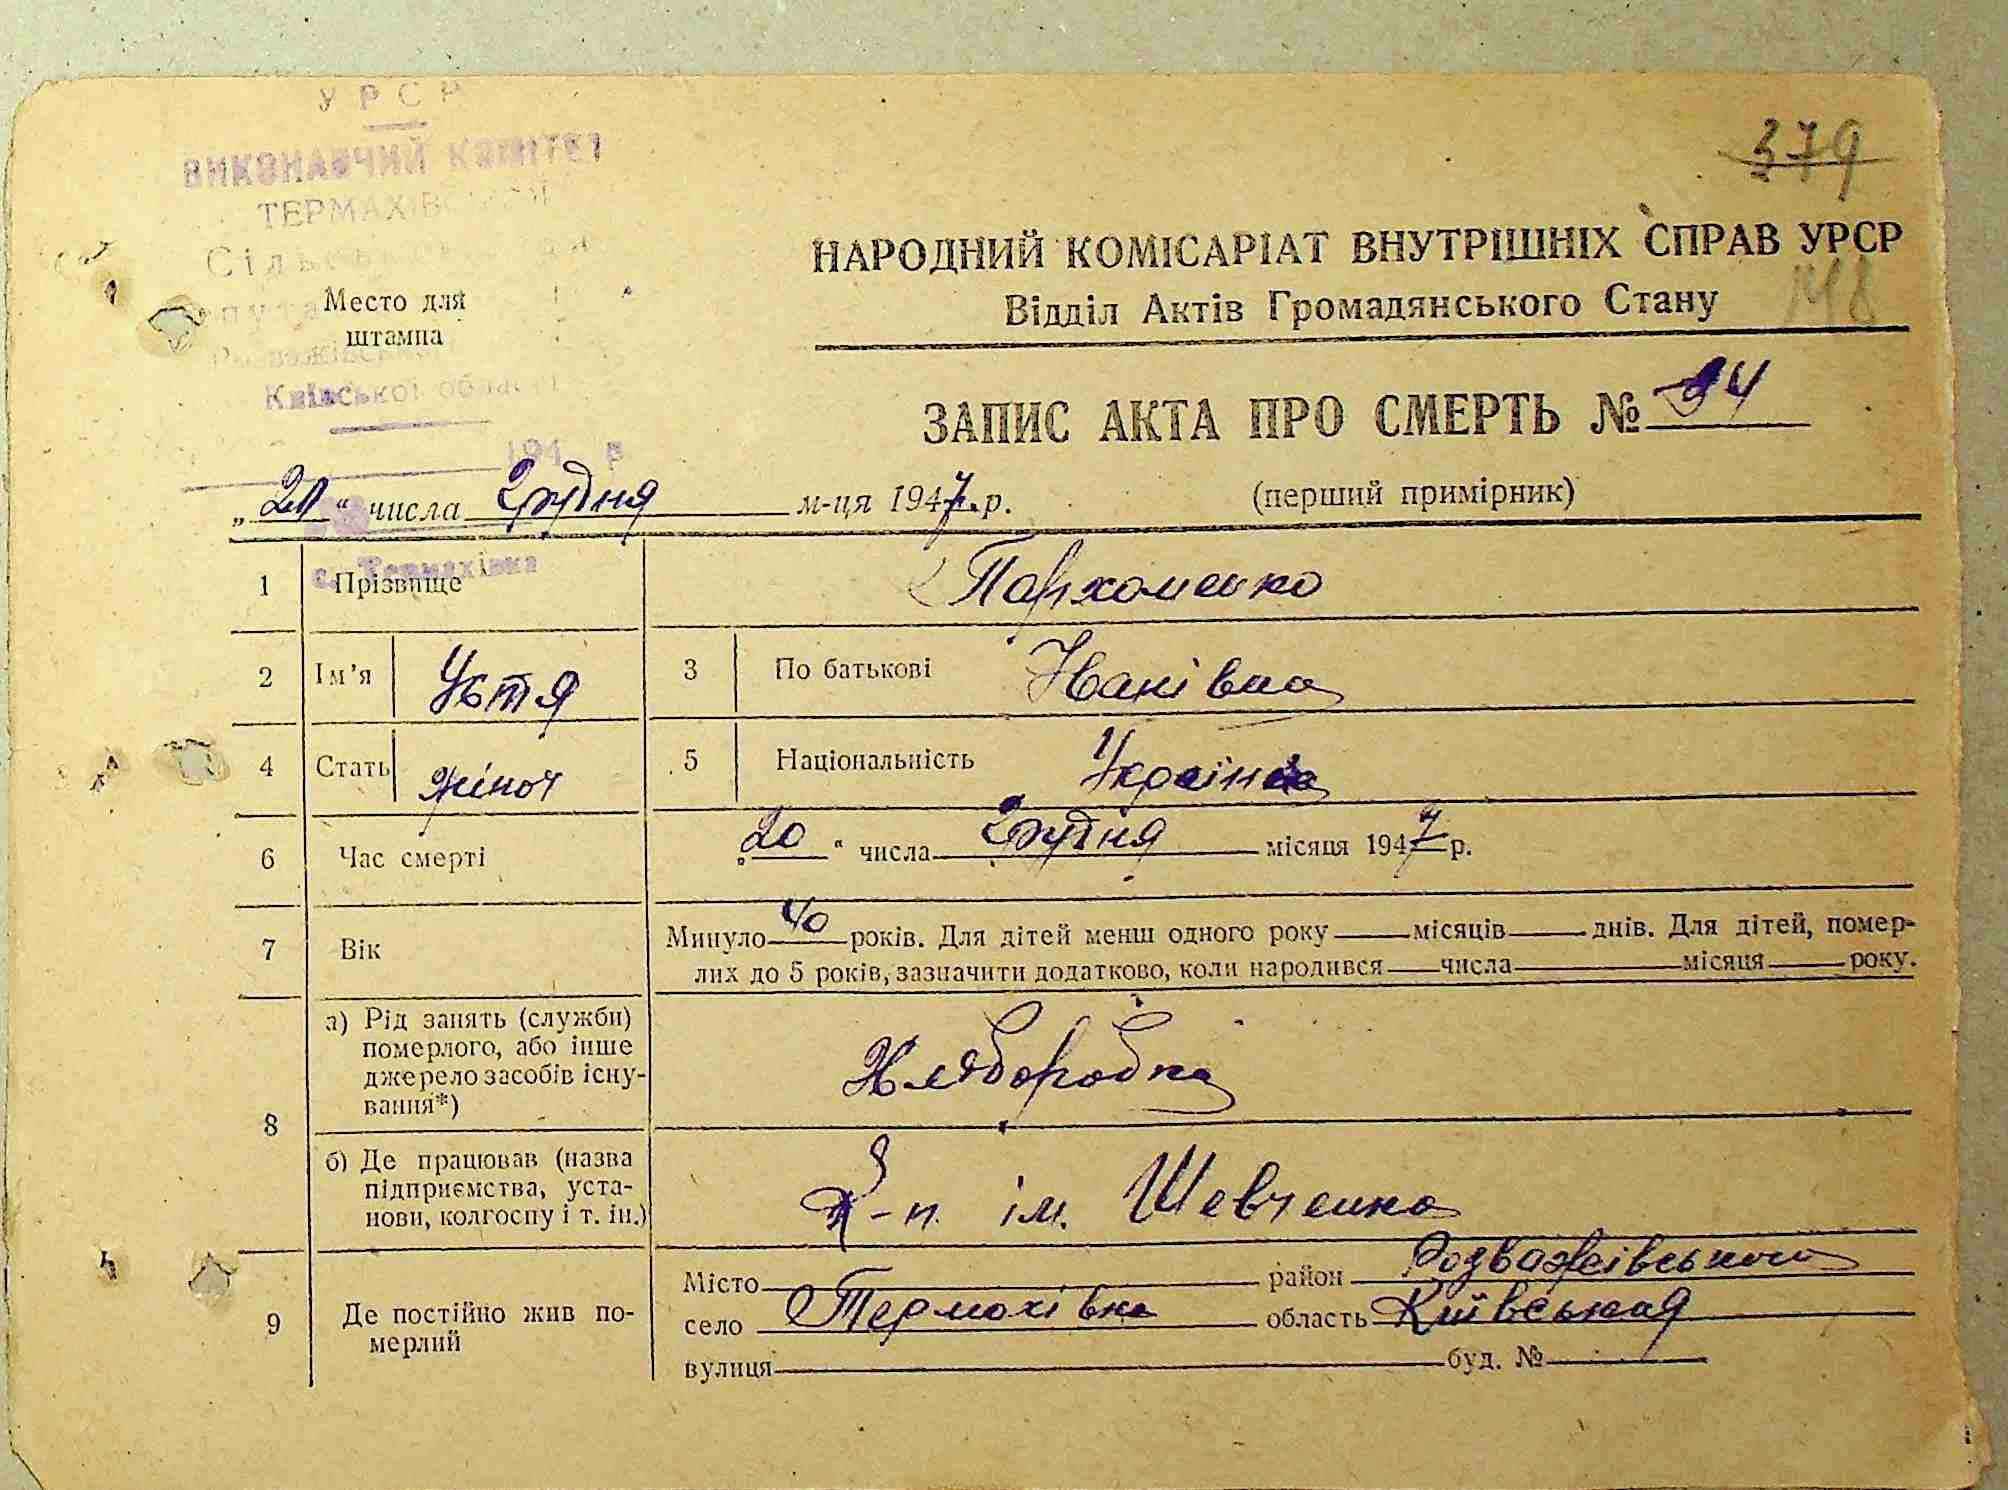 УРСР
ВИКОНАВЧИЙ КОМІТЕТ
ТЕРМАХІВСЬКОЇ
379
НАРОДНИЙ КОМІСАРІАТ ВНУТРІШНІХ СПРАВ УРСР
Відділ Актів Громадянського Стану
148
Место для
штампа
Київської області
ЗАПИС АКТА ПРО СМЕРТЬ № 94
194 р
„20“ числа Грудня м-ця 1947 р. (перший примірник)
с. Термахівка
1 Прізвище Пархоменко
2 Ім'я Устя 3 По батькові Іванівна
4 Стать жіноч 5 Національність Українка
6 Час смерті „20“ числа Грудня місяця 1947 р.
7 Вік Минуло 40 років. Для дітей менш одного року місяців днів. Для дітей, помер-
лих до 5 років, зазначити додатково, коли народився числа місяця року.
8 а) Рід занять (служби)
померлого, або інше
джерело засобів існу-
вання*)
Хлібородка
б) Де працював (назва
підприємства, уста-
нови, колгоспу і т. ін.)
к-п. ім. Шевченка
9 Де постійно жив по-
мерлий
Місто район Розважівського
село Термахівка область Київская
вулиця буд. №